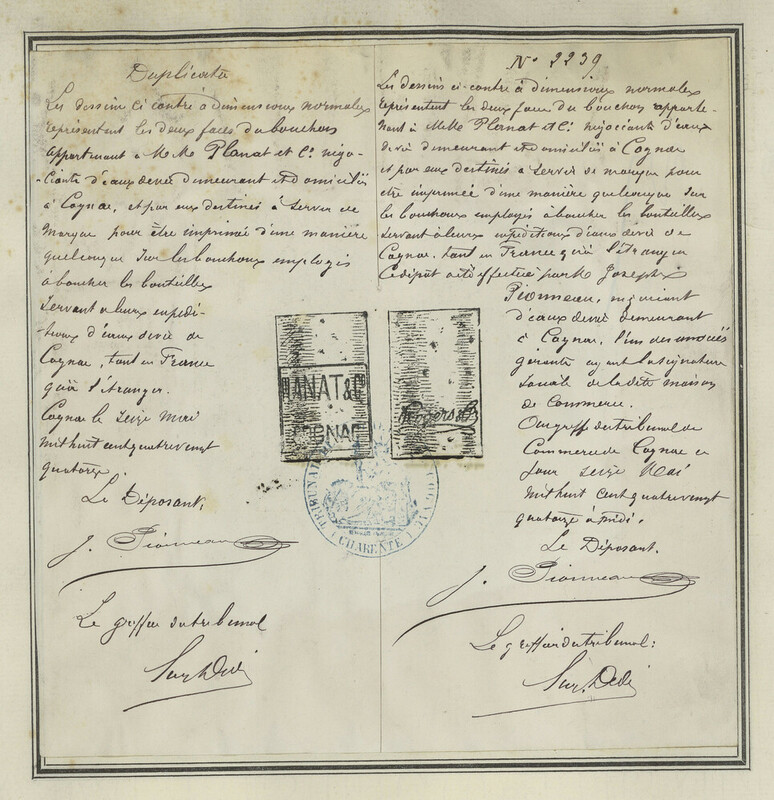 Duplicata
Les dessins ci contre à dimensions normales
représentent les deux faces du bouchon
appartenant à M.M. Planat et Cie négo-
-ciants d'eaux de vie demeurant et domiciliés
à Cognac, et par eux destinés à servir de
marque pour être imprimée d'une manière
quelconque sur les bouchons employés
à boucher les bouteilles
servant à leurs expédi-
-tions d'eaux de vie de
Cognac, tant en France
qu'à l'étranger.
Cognac le seize Mai
mil huit cent quatre vingt
quatorze.
Le Déposant,
J. Pionneau
Le greffier du tribunal
No 2239
Les dessins ci-contre à dimensions normales
représentent les deux faces du bouchon apparte-
nant à M.M. Planat et Cie négociants d'eaux
de vie demeurant et domiciliés à Cognac
et par eux destinés à servir de marque pour
être imprimée d'une manière quelconque sur
les bouchons employés à boucher les bouteilles
servant à leurs expéditions d'eaux de vie de
Cognac, tant en France qu'à l'étranger
Ce dépôt a été effectué par M. Joseph
Pionneau, négociant
d'eaux de vie demeurant
à Cognac, l'un des associés
gérants ayant la signature
sociale de la dite maison
de Commerce.
Au greffe du tribunal de
Commerce de Cognac ce
jour seize Mai
mil huit cent quatre vingt
quatorze à midi.
Le Déposant.
J. Pionneau
Le greffier du tribunal:
PLANAT & Co
COGNAC
TRIBUNAL DE COGNAC
(CHARENTE)